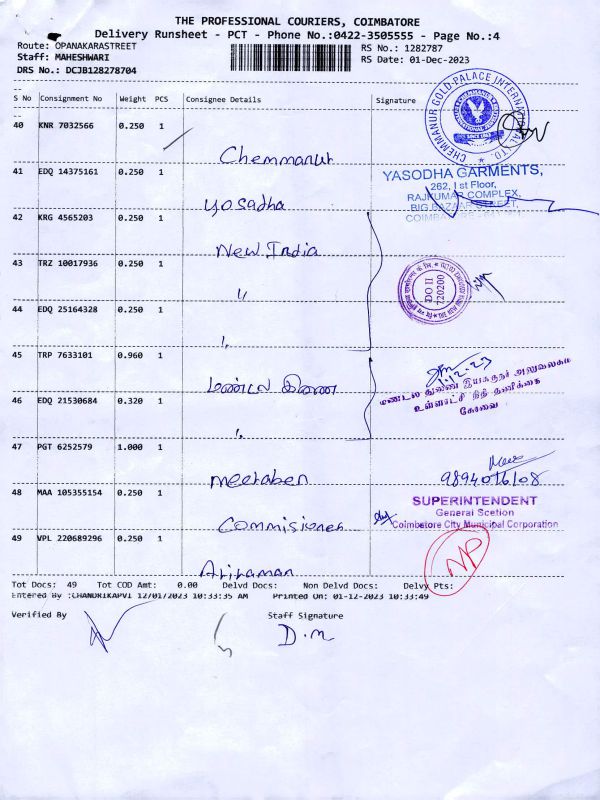 THE PROFESSIONAL COURIERS, COIMBATORE
Delivery Runsheet - PCT - Phone No.:0422-3505555 - Page No.:4
Route: OPANAKARASTREET
RS No.: 1282787
Staff: MAHESHWARI
RS Date: 01-Dec-2023
DRS No.: DCJB128278704
S No Consignment No Weight PCS Consignee Details Signature
40 KNR 7032566 0.250 1
Chemmanur
CHEMMANUR GOLD PALACE INTERNATIONAL LTD.
41 EDQ 14375161 0.250 1
Yosadha
YASODHA GARMENTS,
262, I st Floor,
RAJKUMAR COMPLEX,
BIG BAZAAR STREET,
42 KRG 4565203 0.250 1
New India
43 TRZ 10017936 0.250 1
"
DO II
720200
44 EDQ 25164328 0.250 1
"
45 TRP 7633101 0.960 1
மண்டல இணை
1.12.23
மண்டல துணை இயக்குநர் அலுவலகம்
உள்ளாட்சி நிதி தணிக்கை
கோவை
46 EDQ 21530684 0.320 1
"
47 PGT 6252579 1.000 1
meetaben
9894016108
48 MAA 105355154 0.250 1
Commisioner
SUPERINTENDENT
General Scetion
Coimbatore City Municipal Corporation
49 VPL 220689296 0.250 1
NP
Tot Docs: 49 Tot COD Amt: 0.00 Delvd Docs: Non Delvd Docs: Delvy Pts:
Entered By :CHANDRIKAPVI 12/01/2023 10:33:35 AM Printed On: 01-12-2023 10:33:49
Verified By Staff Signature
D.m